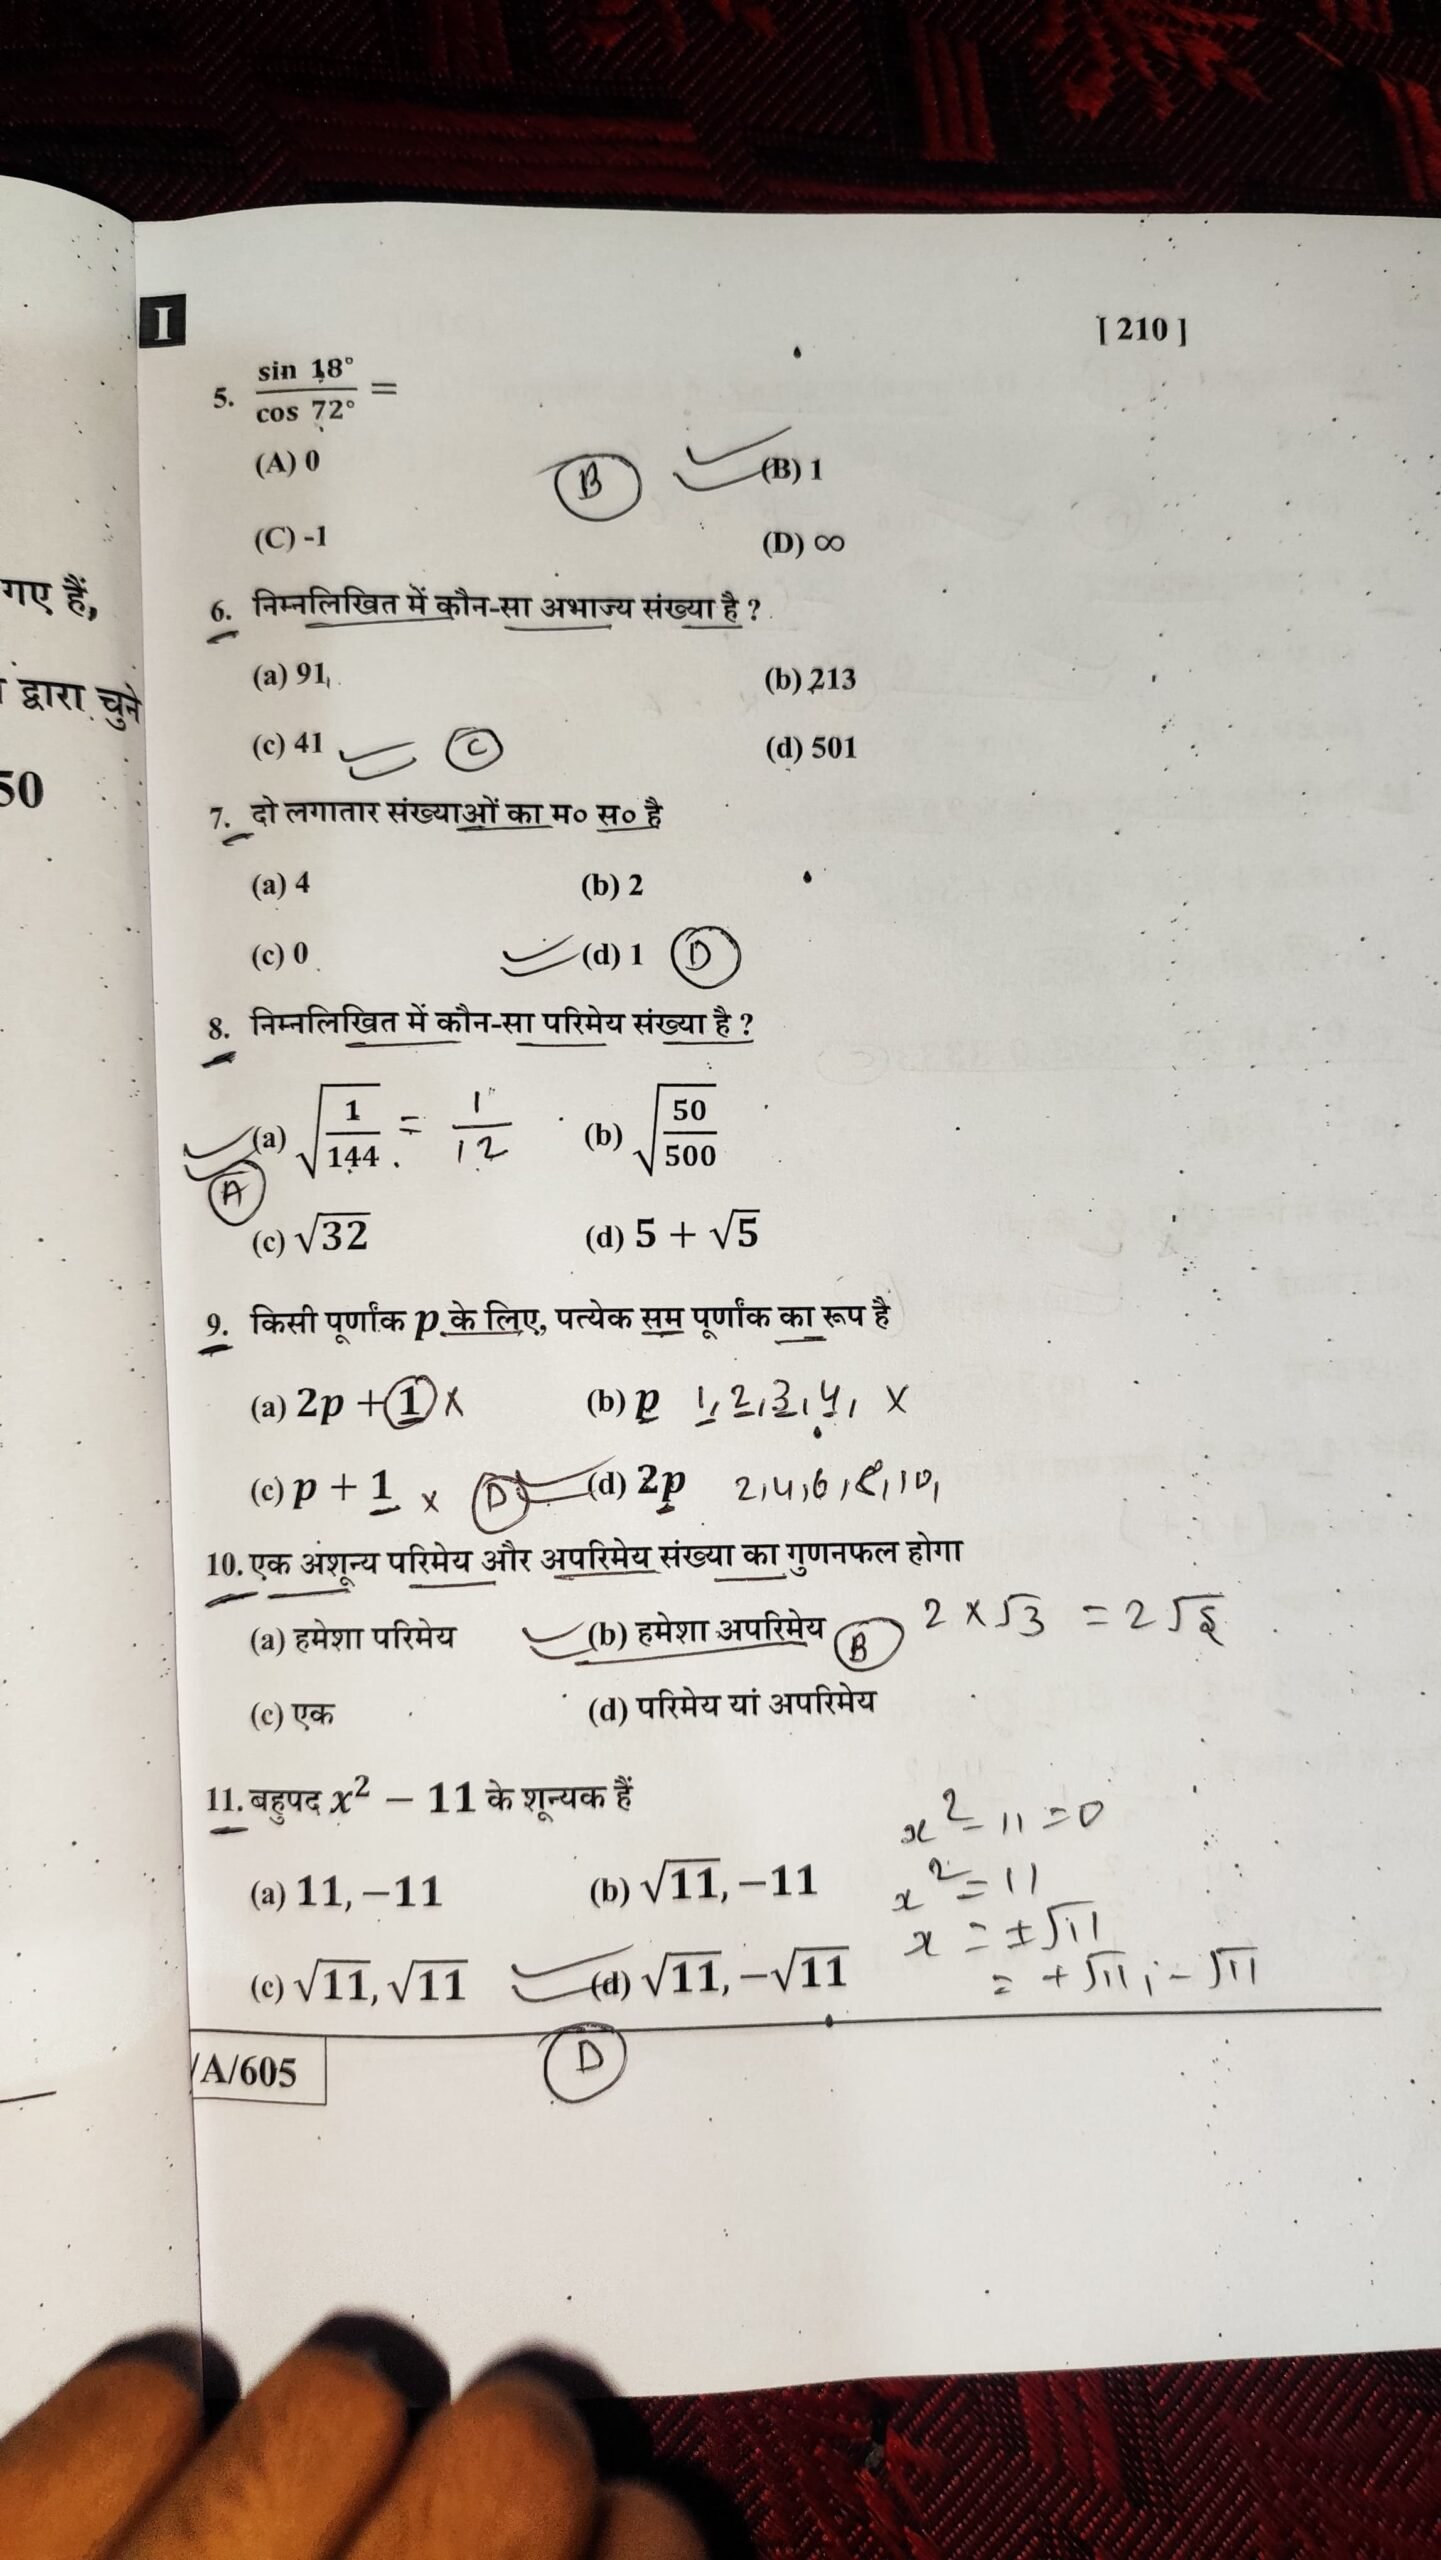 गए हैं,
द्वारा चुने
50
I
[ 210 ]
5. sin 18° / cos 72° =
(A) 0 (B) 1
B
(C) -1 (D) ∞
6. निम्नलिखित में कौन-सा अभाज्य संख्या है ?
(a) 91 (b) 213
(c) 41 C (d) 501
7. दो लगातार संख्याओं का म० स० है
(a) 4 (b) 2
(c) 0 (d) 1 D
8. निम्नलिखित में कौन-सा परिमेय संख्या है ?
(a) √(1/144) = 1/12 (b) √(50/500)
A
(c) √32 (d) 5 + √5
9. किसी पूर्णांक p के लिए, पत्येक सम पूर्णांक का रूप है
(a) 2p + 1 x (b) p 1, 2, 3, 4, x
(c) p + 1 x D (d) 2p 2, 4, 6, 8, 10,
10. एक अशून्य परिमेय और अपरिमेय संख्या का गुणनफल होगा
(a) हमेशा परिमेय (b) हमेशा अपरिमेय B 2 × √3 = 2√3
(c) एक (d) परिमेय यां अपरिमेय
11. बहुपद x² − 11 के शून्यक हैं
x² − 11 = 0
(a) 11, −11 (b) √11, −11 x² = 11
x = ±√11
(c) √11, √11 (d) √11, −√11 = +√11, −√11
D
/A/605